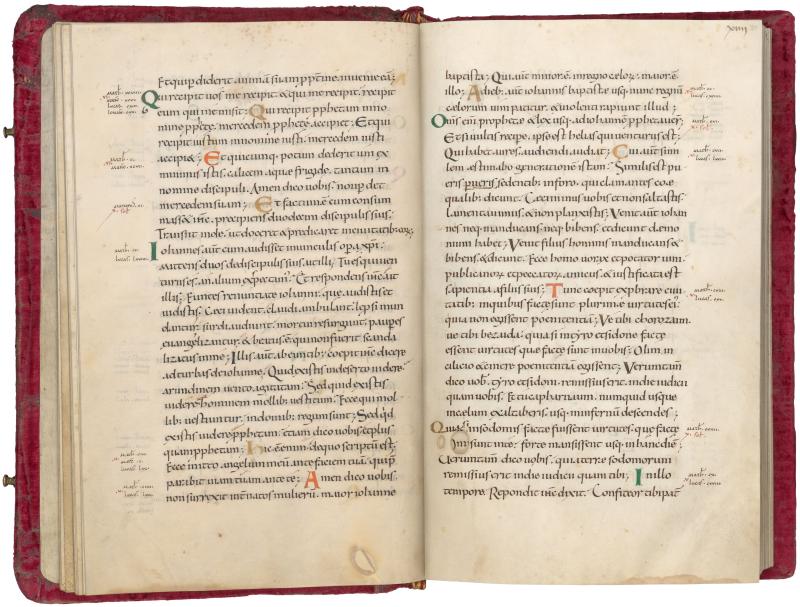 Et qui pdiderit animā suam ppt me inveniet eā;
Qui recipit vos me recipit. & qui me recipit. recipit
eum qui me misit; Qui recipit pphetam in no
mine pphetę. mercedem pphetę accipiet; Et qui
recipit iustum in nomine iusti. mercedem iusti
accipi&; Et quicunq; potum dederit uni ex
minimis istis. calicem aquę frigidę. tantum in
nomine discipuli. Amen dico vobis. non pdet
mercedem suam; Et factum ē cum consum
mass& ihc. precipiens duodecim discipulis suis.
Transiit inde. ut doceret & predicaret in civitatib; eorū;
Iohannes aut cum audisset in vinculis opera xpi.
mittens duos de discipulis suis. ait illi; Tu es qui ven
turus es. an alium expectam; Et respondens ihc ait
illis; Euntes renuntiate iohanni. quę audistis et
vidistis; Ceci vident. claudi ambulant. leprosi mun
dantur. surdi audiunt. mortui resurgunt. paupes
euangelizantur. & beatus ē qui non fuerit scanda
lizatus in me; Illis aut abeuntib; coepit ihc dicere
ad turbas de iohanne. Quid existis in deserto videre
arundinem vento agitatam; Sed quid existis
videre hominem mollib; vestitum; Ecce qui mol
lib; vestiuntur. in domib; regum sunt; Sed qd
existis videre pphetam; etiam dico vobis & plus
quam pphetam; Hic ē enim de quo scriptū est;
Ecce mitto angelum meū ante faciem tuā. qui pp
parabit viam tuam ante te; Amen dico vobis.
non surrexit int natos mulierū. maior iohanne
xiiii
baptista; Qui aut minor ē. in regno cęlorū. maior ē
illo; A dieb; aut iohannis baptistę usq; nunc regnū
cęlorum vim patitur. & violenti rapiunt illud;
Oms eni prophetę & lex usq; ad iohannē pphetaver;
Et si vultis recipe. ipse est helias qui venturus est;
Qui habet aures. audiendi. audiat; Cui aut simi
lem ęstimabo generationē istam; Similis est pu
eris pueris sedentib; in foro. qui clamantes coę
qualib; dicunt. Cecinimus vobis et non saltastis.
lamentavimus. & non planxistis; Venit aut iohan
nes neq; manducans. neq; bibens. et dicunt dęmo
nium habet; Venit filius hominis manducans &
bibens. & dicunt. Ecce homo vorax et potator vini.
publicanorū et peccatorū amicus. & iustificata est
sapientia a filiis suis; Tunc coepit exprobrare civi
tatib; in quibus factę sunt plurimę virtutes ei;
quia non egissent poenitentiā; Vę tibi chorozaim.
vę tibi bezaida. quia si in tyro et sidone factę
essent virtutes quę factę sunt in vobis. Olim in
cilicio & cinere poenitentiā egissent; Verumtam
dico vob. tyro et sidoni. remissius erit. in die iudicii
quam vobis; Et tu capharnaum. numquid usque
in cęlum exaltaberis. usq; in infernū descendes;
Quia si in sodomis factę fuissent virtutes. quę factę
sunt in te. forte mansissent usq; in hanc die;
Veruntam dico vobis. quia terrę sodomorum
remissius erit in die iudicii quam tibi; In illo
tempore. Respondit ihc dixit. Confiteor tibi pat